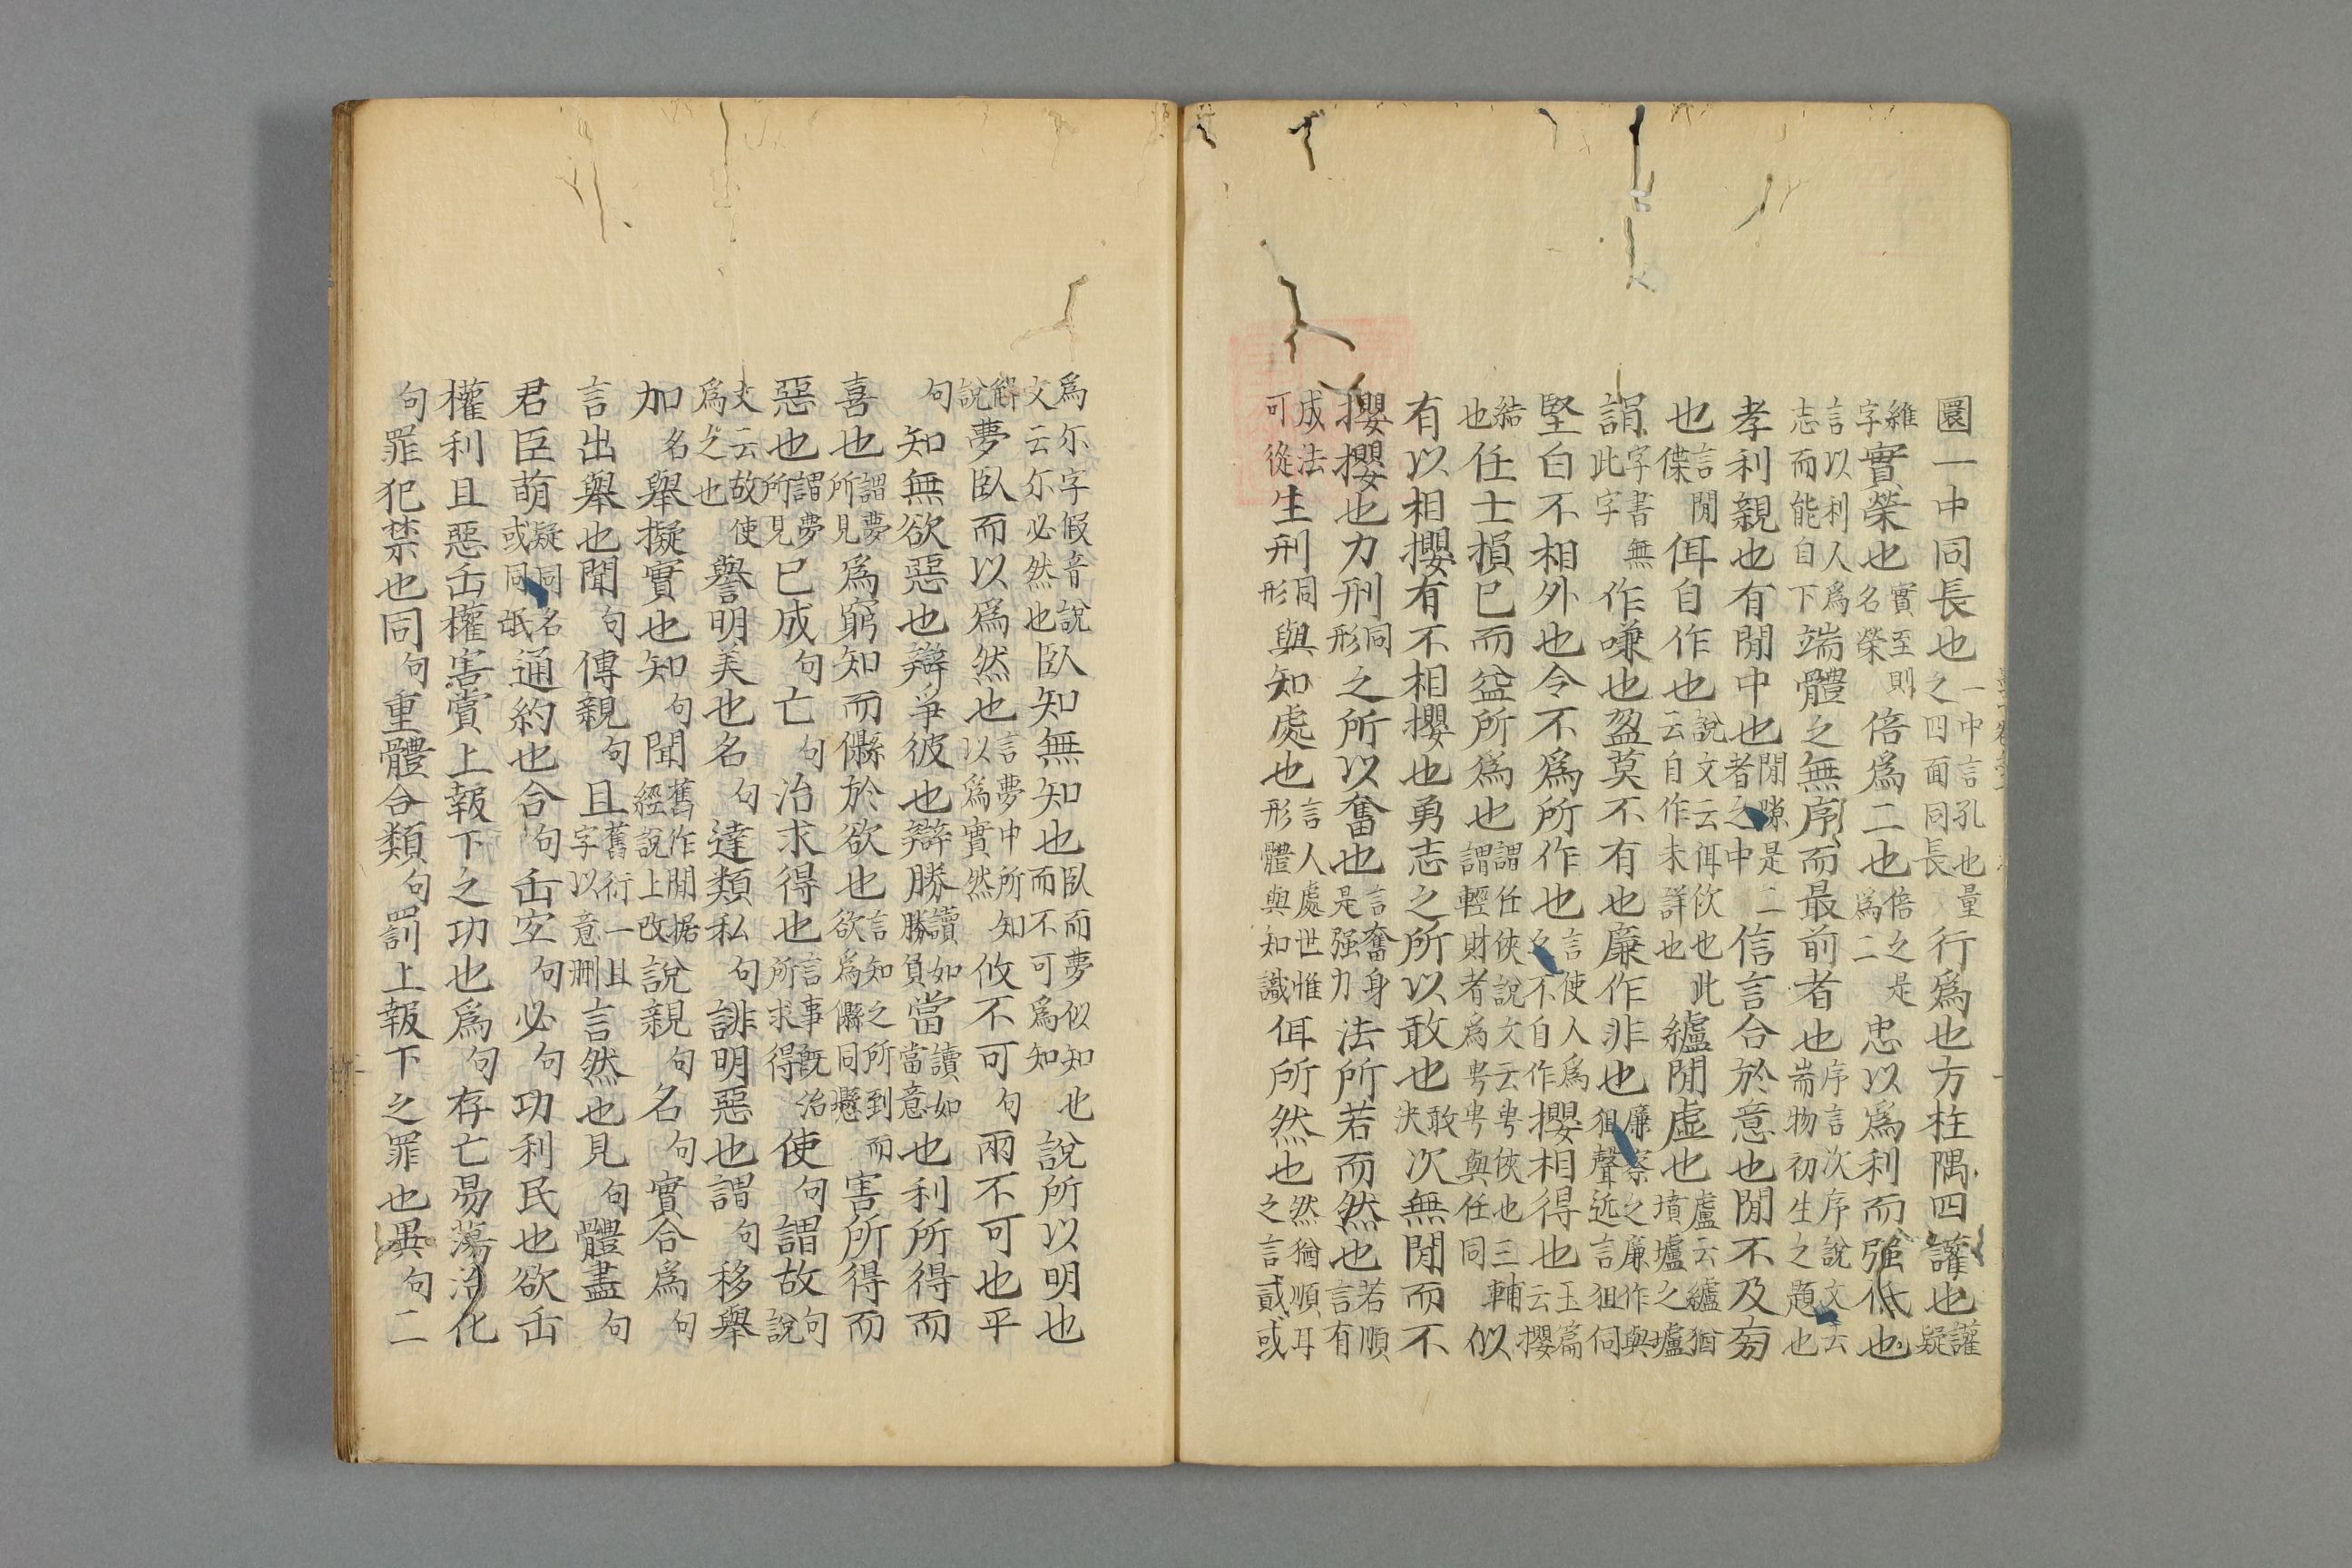 圜一中同長也一中言孔也量之四面同長行爲也方柱隅四讙也讙疑
維字實榮也實至則名榮倍爲二也倍之是爲二忠以爲利而強低也
言以利人爲志而能自下端體之無序而最前者也序言次序說文云耑物初生之題也
孝利親也有閒中也閒隙是二者之中信言合於意也閒不及旁
也言閒僷佴自作也說文云佴佽也此云自作未詳也纑閒虛也盧云纑猶墳壚之壚
䛼字書無此字作嗛也盈莫不有也廉作非也廉察之廉作與狙聲近言狙伺
堅白不相外也令不爲所作也言使人爲之不自作攖相得也玉篇云攖
結也任士損已而益所爲也謂任俠說文云甹俠也三輔謂輕財者爲甹甹與任同似
有以相攖有不相攖也勇志之所以敢也敢決次無閒而不
攖攖也力刑同形之所以奮也言奮身是强力法所若而然也若順言有
成法可從生刑同形與知處也言人處世惟形體與知識佴所然也然猶順耳之言貳或
爲尒字假音說文云尒必然也臥知無知也臥而夢似知也而不可爲知說所以明也
解說夢臥而以爲然也言夢中所知以爲實然攸不可句兩不可也平
句知無欲惡也辯爭彼也辯勝讀如勝負當讀如當意也利所得而
喜也謂夢所見爲窮知而縣於欲也言知之所到而欲爲縣同懸害所得而
惡也謂夢所見已成句亡句治求得也言事旣治所求得使句謂故句說
文云故使爲之也譽明美也名句達類私句誹明惡也謂句移舉
加名舉擬實也知句聞舊作閒据經說上改說親句名句實合爲句
言出舉也聞句傳親句且舊衍一且字以意刪言然也見句體盡句
君臣萌疑同名或同氓通約也合句缶宐句必句功利民也欲缶
權利且惡缶權害賞上報下之功也爲句存亡昜蕩治化
句罪犯禁也同句重體合類句罰上報下之罪也異句二